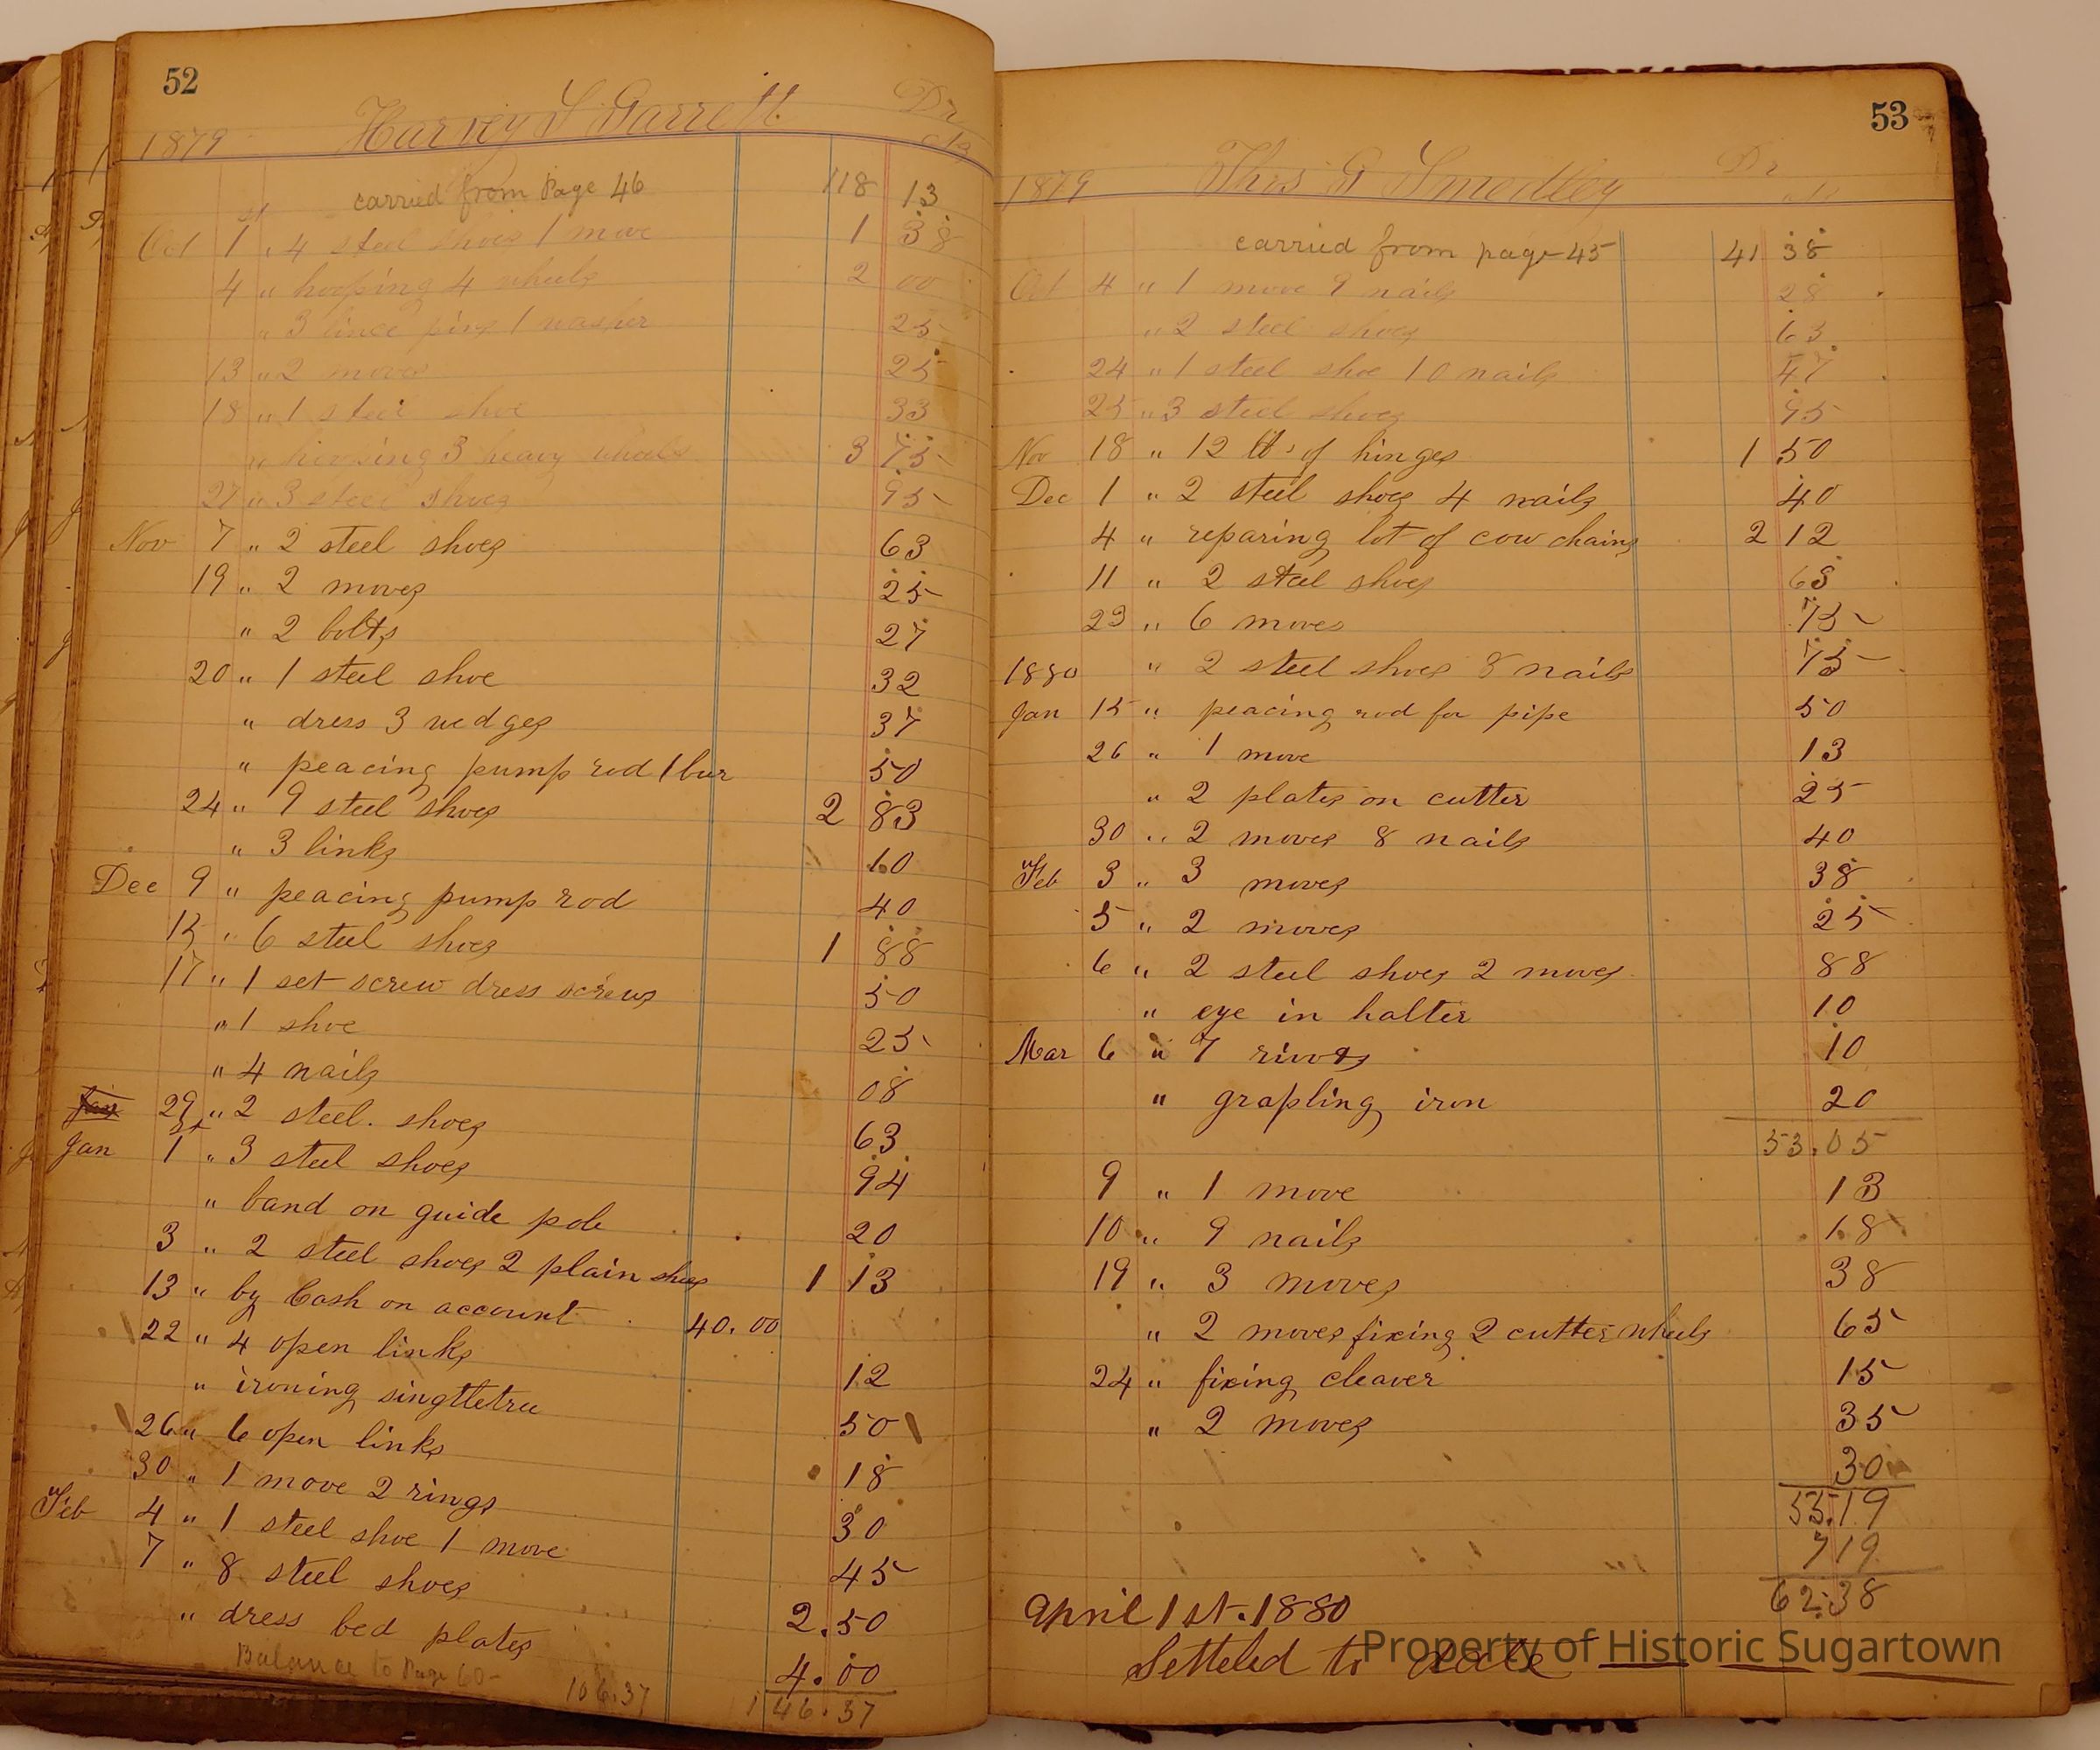 52
Harvey S Garrett Dr
1879 cts
carried from Page 46 118 13
Oct 1st " 4 steel shoes 1 move 1 38
4 " hooping 4 wheels 2 00
" 3 lince pins 1 washer 25
13 " 2 moves 25
18 " 1 steel shoe 33
" 3 heavy wheels 3 75
27 " 3 steel shoes 95
Nov 7 " 2 steel shoes 63
19 " 2 moves 25
" 2 bolts 27
20 " 1 steel shoe 32
" dress 3 wedges 37
" peacing pump rod 1 bur 50
24 " 9 steel shoes 2 83
" 3 links 10
Dec 9 " peacing pump rod 40
15 " 6 steel shoes 1 88
17 " 1 set screw dress screws 50
" 1 shoe 25
" 4 nails 08
Jan 29 " 2 steel shoes 63
Jan 1st " 3 steel shoes 94
" band on guide pole 20
3 " 2 steel shoes 2 plain shoes 1 13
13 " by Cash on account 40.00
22 " 4 open links 12
" ironing singtletree 50
26 " 6 open links 18
30 " 1 move 2 rings 30
Feb 4 " 1 steel shoe 1 move 45
7 " 8 steel shoes 2.50
" dress bed plates 4.00
Balance to Page 60 106.37 146.37
53
1879 Thos G Smedley Dr
cts
carried from page 45 41 38
Oct 4 " 1 move 9 nails 28
" 2 steel shoes 63
24 " 1 steel shoe 10 nails 47
25 " 3 steel shoes 95
Nov 18 " 12 lbs of hinges 1 50
Dec 1 " 2 steel shoes 4 nails 40
4 " reparing lot of cow chains 2 12
11 " 2 steel shoes 63
23 " 6 moves 75
1880 " 2 steel shoes 8 nails 75
Jan 15 " peacing rod for pipe 50
26 " 1 move 13
" 2 plates on cutter 25
30 " 2 moves 8 nails 40
Feb 3 " 3 moves 38
5 " 2 moves 25
6 " 2 steel shoes 2 moves 88
" eye in halter 10
Mar 6 " 7 rivets 10
" grapling iron 20
53.05
9 " 1 move 13
10 " 9 nails 18
19 " 3 moves 38
" 2 moves fixing 2 cutter wheels 65
24 " fixing cleaver 15
" 2 moves 35
30
55.19
7 19
62.38
April 1st. 1880
Settled to date
Property of Historic Sugartown